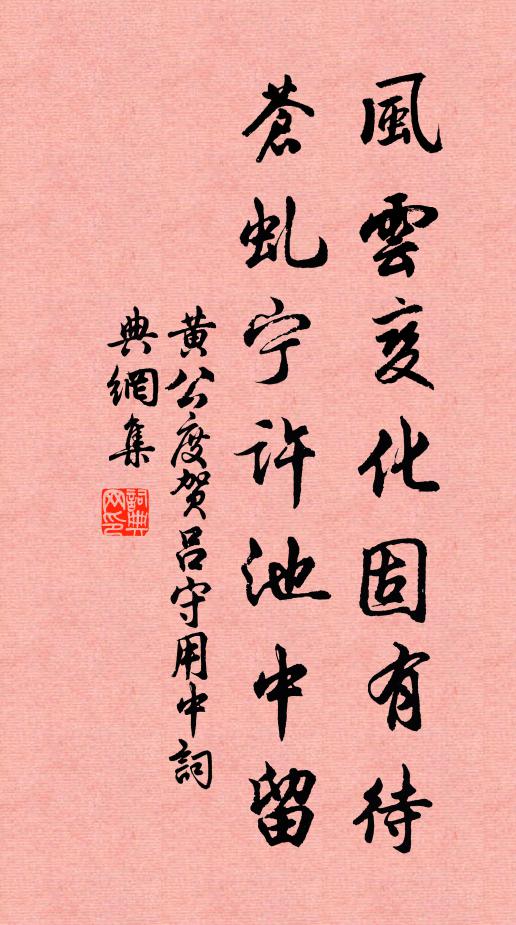 風雲变化固有待
蒼虬宁許池中留
黄公度贺吕守用中詞
典網集
詞典网印